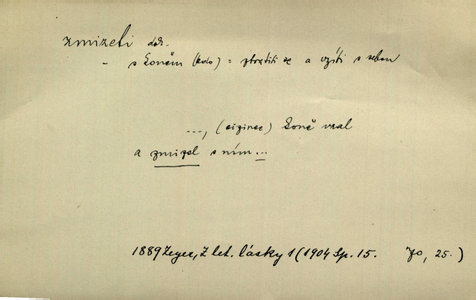 zmizeti dok.
– s koněm (kdo) = ztratiti se a vzíti s sebou
..., (cizinec) koně vzal
a zmizel s ním...
1889 Zeyer, Z let. lásky 1 (1904 Sp. 15. 70, 25.)